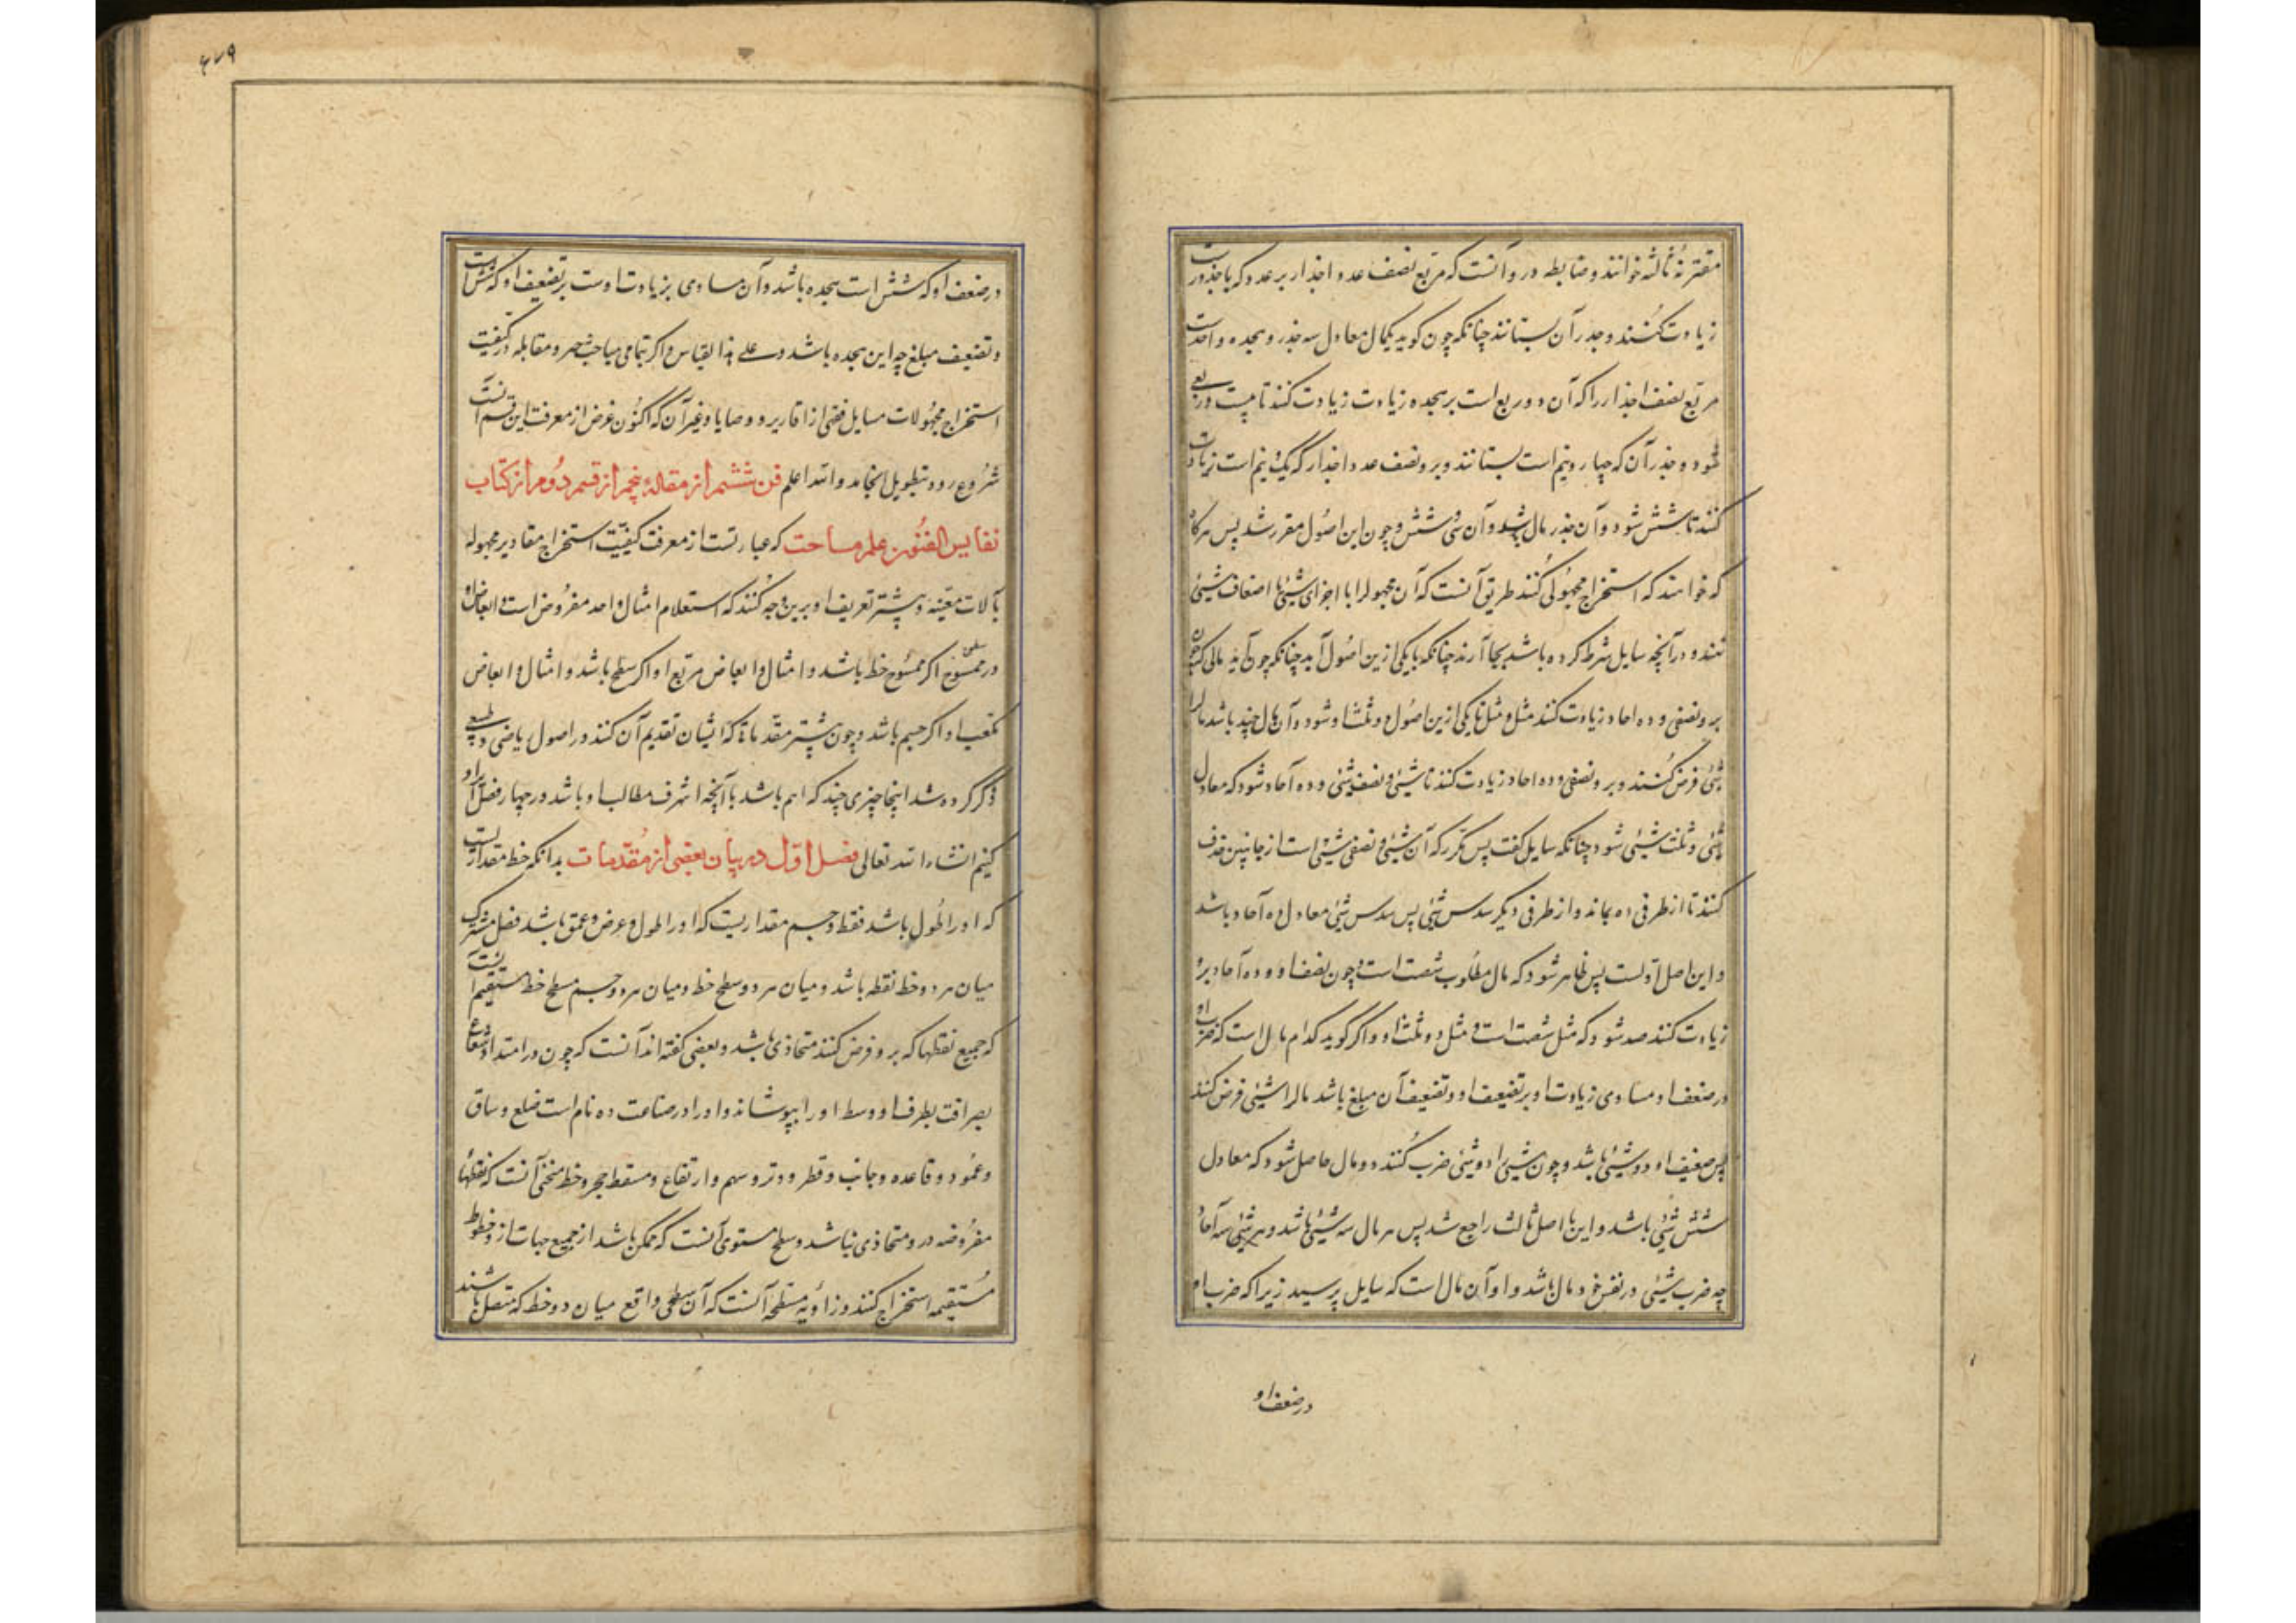 مقترنهٔ ثالثه خوانند و ضابطه در و آنست که مربع نصف عدد اجذار بر عدد که با جذورست
زیادت کنند و جذر آن بستانند چنانکه چون گوید یکمال معادل سه جذر و هجده واحدست
مربع نصف اجذار را که آن دو و ربع است بر هجده زیادت زیادت کنند تا بیست و ربعی
شود و جذر آن که چهار و نیم است بستانند و برو نصف عدد اجذار که یک و نیم است زیادت
کنند تا شش شود و آن جذر مال باشد و آن سی و شش و چون این اصول مقرر شد پس هرگاه
که خواهند که استخراج مجهولی کنند طریق آنست که آن مجهول را با اجزای شیئی با اضعاف شیئی
کنند و در آنچه سایل شرط کرده باشد بجا آرند چنانکه بایکی ازین اصول آید چنانکه چون آید مالی که چون
برو نصفی و ده احاد زیادت کنند مثل و مثل تا یکی ازین اصول و ثلث او شود و آن مال چند باشد مال را
شیئی فرض کنند و برو نصفی و ده احاد زیادت کنند تا شیئی و نصف شیئی و ده آحاد شود که معادل
شیئی و ثلث شیئی شود چنانکه سایل گفت پس مکرر که آن شیئی و نصفی شیئی است از جانبین حذف
کنند تا از طرفی ده بماند و از طرفی دیگر سدس شیئی پس سدس شیئی معادل ده آحاد باشد
و این اصل اولست پس ظاهر شود که مال مطلوب شصت است و چون نصف او و ده آحاد برو
زیادت کنند صد شود که مثل شصت است و مثل دو ثلث او و اگر گوید کدام مال است که ضرب او
در ضعف او مساوی زیادت او بر تضعیف او و تضعیف آن مبلغ باشد مال را شیئی فرض کنند
پس ضعیف او دو شیئی باشد و چون شیئی را در دو شیئی ضرب کنند دو مال حاصل شود که معادل
شش شیئی باشد و این با اصل ثالث راجع شد پس هر مال سه شیئی باشد و هر شیئی سه آحاد
چه ضرب شیئی در نفس خود مال باشد و او آن مال است که سایل پرسید زیرا که ضرب او
در ضعف او
۶۷۹
در ضعف او که شش است هجده باشد و آن مساوی بزیادت اوست بر تضعیف او که شش است
و تضعیف مبلغ چه این هجده باشد و علی هذا القیاس و اگر بتمامی مباحث جبر و مقابله در کیفیت
استخراج مجهولات مسایل فقهی از اقاریر و وصایا و غیر آن که اکنون غرض از معرفت این قسم آنست
شروع رود بتطویل انجامد والله اعلم فن ششم از مقالهٔ پنجم از قسم دوم از کتاب
نفایس الفنون علم مساحت که عبارتست از معرفت کیفیت استخراج مقادیر مجهوله
بآلات معینه و پیشتر تعریف او برین وجه کنند که استعلام امثال واحد مفروض است و ابعاض او
در ممسوح اگر ممسوح خط باشد و امثال و ابعاض مربع او اگر سطح باشد و امثال و ابعاض
مکعب او اگر جسم باشد و چون پیشتر مقدماتی که ایشان تقدیم آن کنند در اصول ریاضی و طبیعی
ذکر کرده شد اینجا چیزی چند که اهم باشد با آنچه اشرف مطالب او باشد در چهار فصل ایراد
کنیم انشاءالله تعالی فصل اول در بیان بعضی از مقدمات بدانکه خط مقداریست
که او را طول باشد فقط و جسم مقداریست که او را طول و عرض و عمق باشد فصل مشترک
میان هر دو خط نقطه باشد و میان هر دو سطح خط و میان هر دو جسم سطح خط مستقیم آنست
که جمیع نقطها که برو فرض کنند متحاذی باشد و بعضی گفته‌اند آنست که چون در امتداد شعاع
بصر افتد بطرف او وسط او را بپوشاند و او را در صناعت ده نام است ضلع و ساق
و عمود و قاعده و جانب و قطر و وتر و سهم و ارتفاع و مسقط حجر و خط منحنی آنست که نقطهاء
مفروضه در و متحاذی نباشد و سطح مستوی آنست که ممکن باشد از جمیع جهات از و خطوط
مستقیمه استخراج کنند و زاویه مسطحه آنست که آن سطحی واقع میان دو خط که متصل باشند